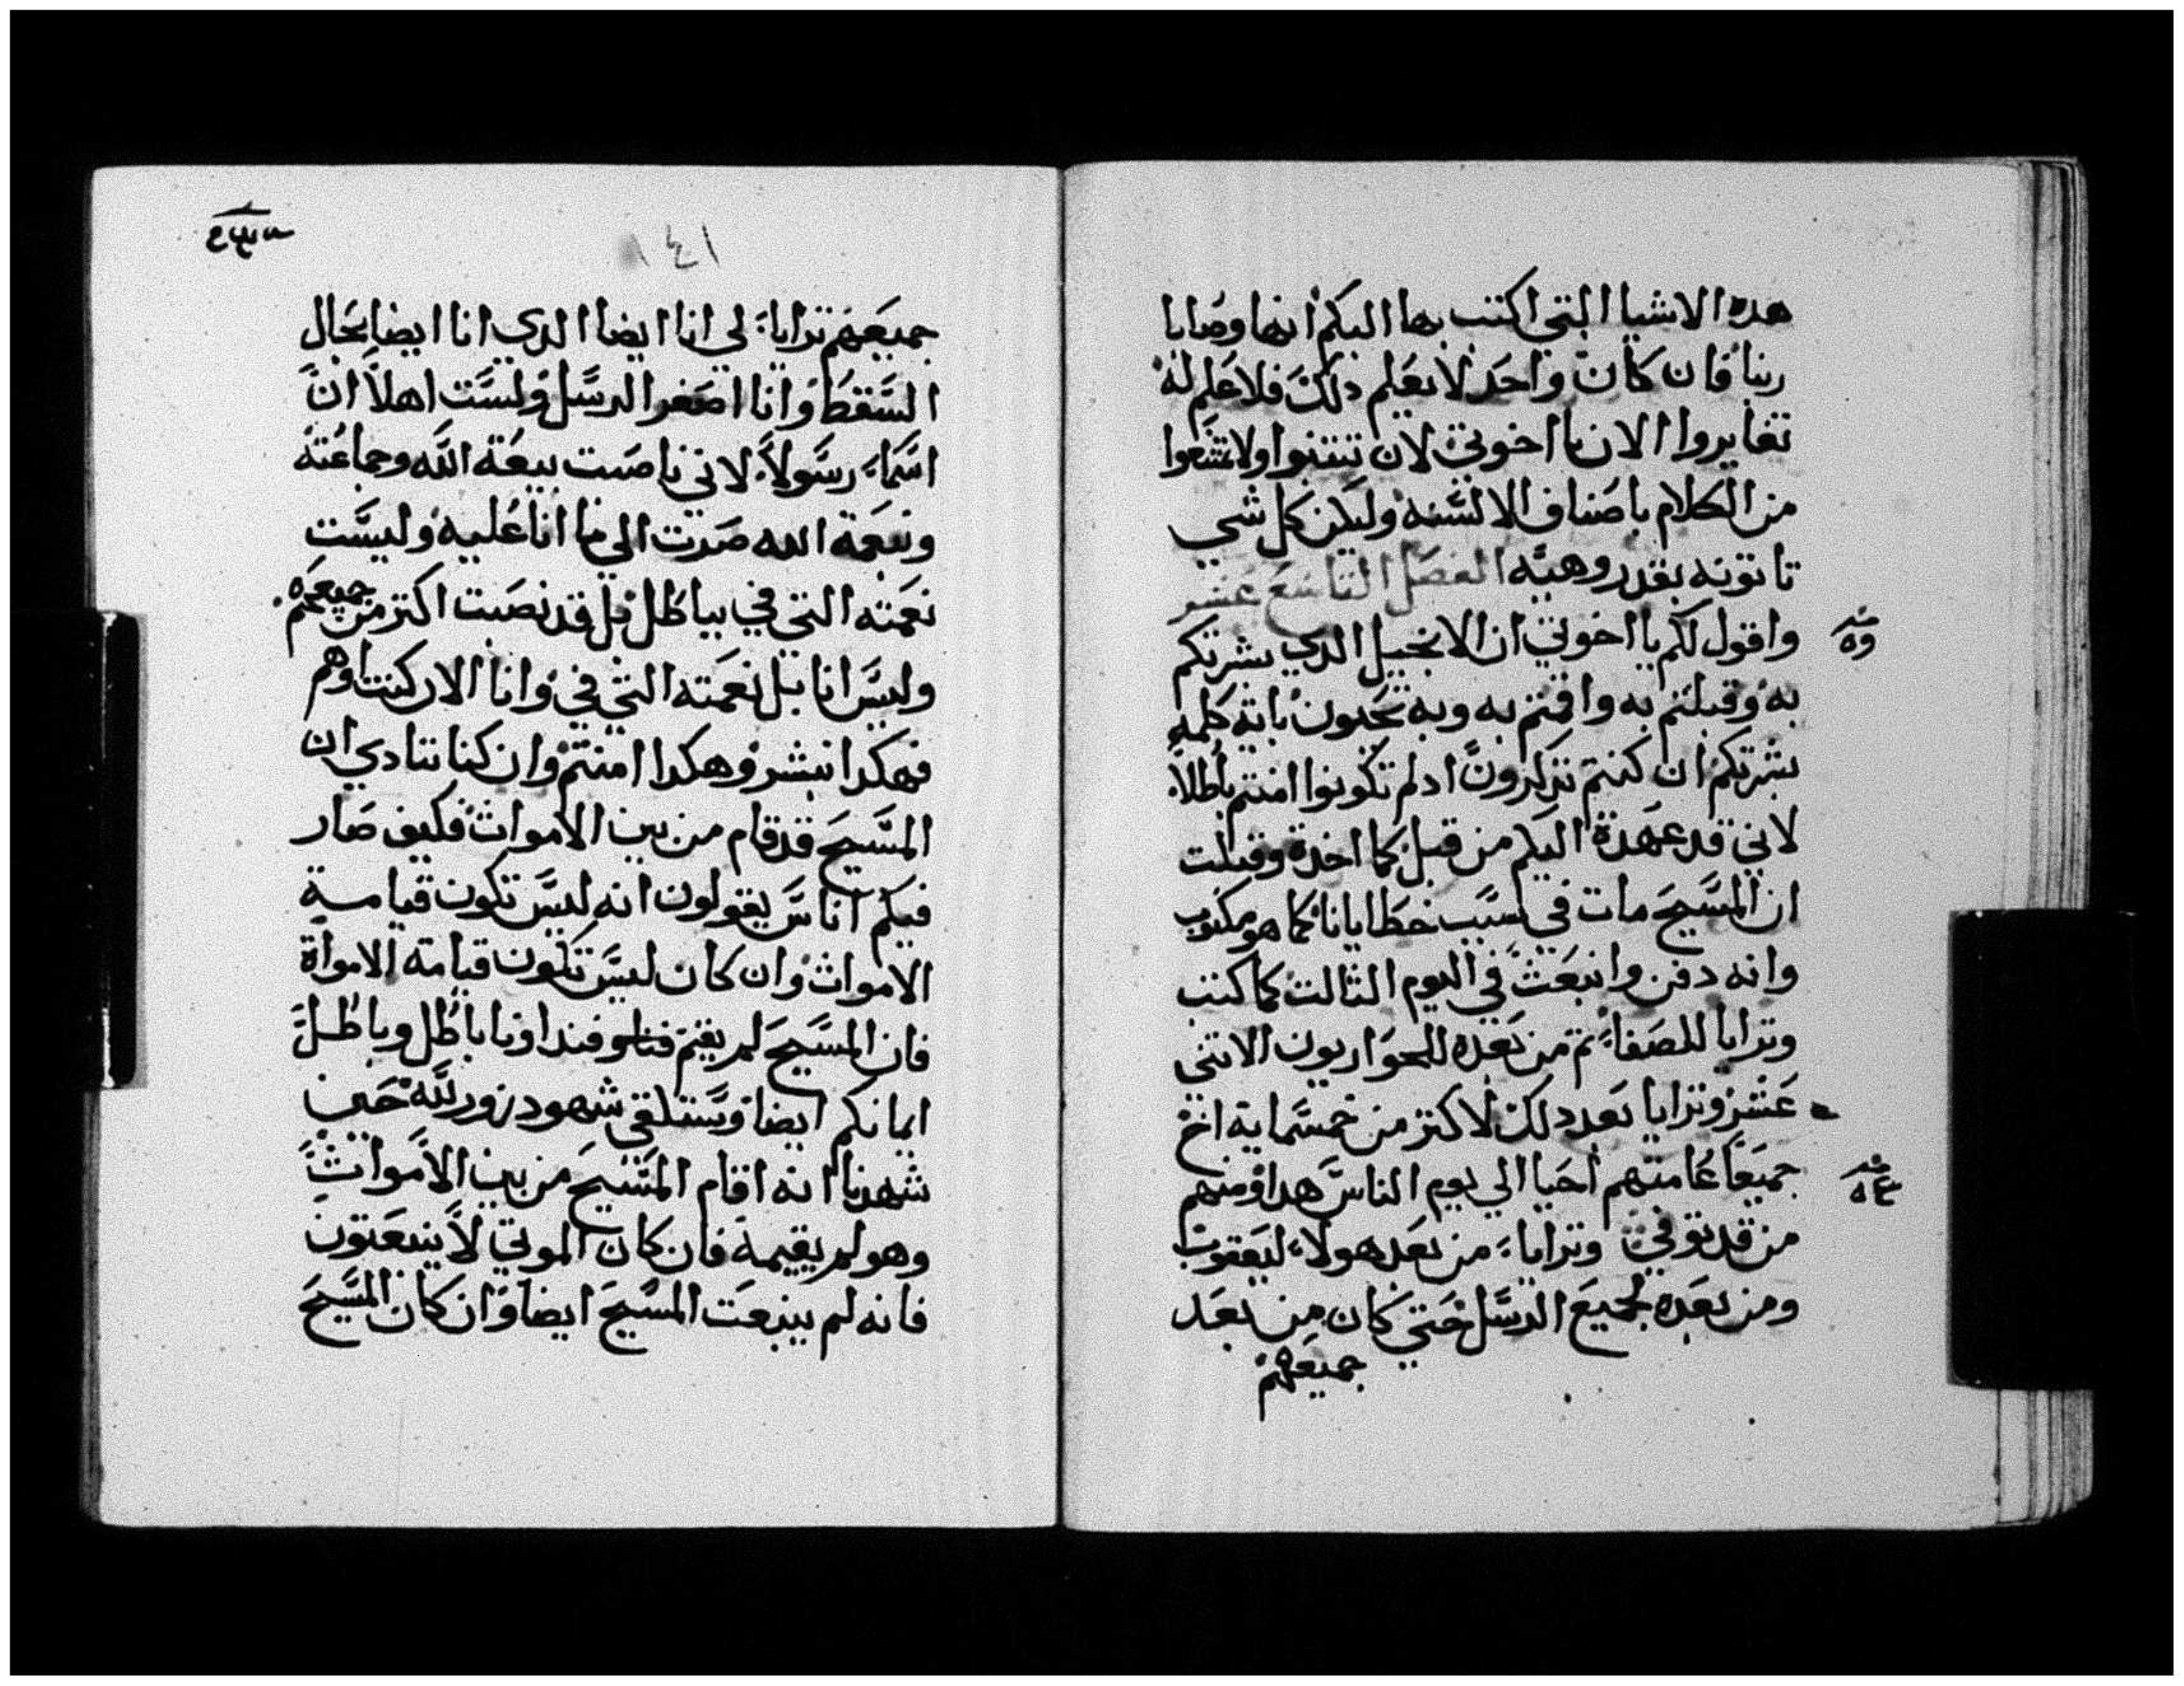 هده الاشيا التي اكتب بها اليكم انها وصايا
ربنا فان كان واحد لا يعلم دلك فلا علم له
تغايروا الان يا اخوتي لان تتنبوا ولا تمنعوا
من الكلام باصناف الالسنه وليكن كل شي
تاتونه بقدر وهيه الفصل التاسع عشر
واقول لكم يا اخوتي ان الانجيل الدي بشرتكم
به وقبلتم به واقمتم به وبه تحيون باية كلمه
بشرتكم ان كنتم تزكرون ادلم تكونوا امنتم باطلا
لاني قد عهدة اليكم من قبل كما اخدة وقبلت
ان المسيح مات في سبب خطايانا كما هو مكتوب
وانه دفن وانبعث في اليوم الثالت كما كتب
وترايا للصفا ثم من بعده للحواريون الاتني
عشر وترايا بعد دلك لاكتر من خمسماية اخ
جميعا عامتهم احيا الي يوم الناس هدا ومنهم
من قد توفي وترايا من بعد هولاء ليعقوب
ومن بعده لجميع الرسل حتي كان من بعد
جميعهم
١٤١
جميعهم ترايا لي انا ايضا الدي انا ايضا بحال
السقط وانا اصغر الرسل ولست اهلا ان
اسما رسولا لاني ناصبت بيعة الله وجماعته
وبنعمة الله صرت الي ما انا عليه وليست
نعمته التي في بباطل بل قد نصبت اكتر من جميعهم
وليس انا بل نعمته التي في وانا الان كنت اوهم
فهكدا نبشر وهكدا امنتم وان كنا ننادي ان
المسيح قد قام من بين الاموات فكيف صار
فيكم اناس يقولون انه ليس تكون قيامة
الاموات وان كان ليس تكون قيامة الامواة
فان المسيح لم يقم فندا ونا باطل وباطل
ايمانكم ايضا وسنلقي شهود زور لله حين
شهدنا انه اقام المسيح من بين الاموات
وهو لم يقيمه فان كان الموتي لا ينبعتون
فانه لم ينبعت المسيح ايضا وان كان المسيح